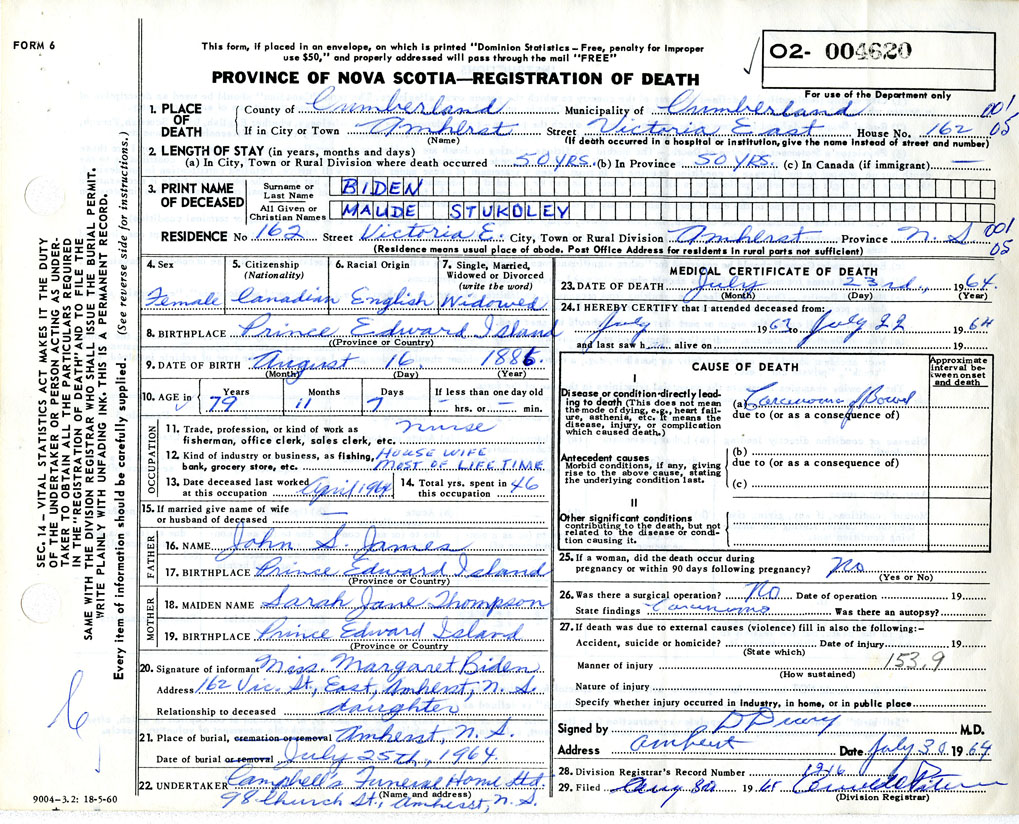 FORM 6
This form, if placed in an envelope, on which is printed "Dominion Statistics – Free, penalty for improper
use $50," and properly addressed will pass through the mail "FREE"
O2- 004620
For use of the Department only
PROVINCE OF NOVA SCOTIA—REGISTRATION OF DEATH
1. PLACE OF DEATH County of Cumberland Municipality of Cumberland 001
If in City or Town Amherst Street Victoria East House No. 162 05
(Name) (If death occurred in a hospital or institution, give the name instead of street and number)
2. LENGTH OF STAY (in years, months and days)
(a) In City, Town or Rural Division where death occurred 50 YRS. (b) In Province 50 YRS. (c) In Canada (if immigrant) —
3. PRINT NAME OF DECEASED Surname or Last Name BIDEN
All Given or Christian Names MAUDE STUKOLEY
RESIDENCE No 162 Street Victoria E. City, Town or Rural Division Amherst Province N. S 001 05
(Residence means usual place of abode. Post Office Address for residents in rural parts not sufficient)
4. Sex 5. Citizenship (Nationality) 6. Racial Origin 7. Single, Married, Widowed or Divorced (write the word)
Female Canadian English Widowed
8. BIRTHPLACE Prince Edward Island
(Province or Country)
9. DATE OF BIRTH August 16, 1886.
(Month) (Day) (Year)
10. AGE in Years Months Days If less than one day old
79 11 7 – hrs. or – min.
OCCUPATION
11. Trade, profession, or kind of work as fisherman, office clerk, sales clerk, etc. nurse
12. Kind of industry or business, as fishing, bank, grocery store, etc. HOUSE WIFE
MOST OF LIFE TIME
13. Date deceased last worked at this occupation April 1964 14. Total yrs. spent in this occupation 46
15. If married give name of wife or husband of deceased —
FATHER
16. NAME John S. James
17. BIRTHPLACE Prince Edward Island
(Province or Country)
MOTHER
18. MAIDEN NAME Sarah Jane Thompson
19. BIRTHPLACE Prince Edward Island
(Province or Country)
20. Signature of informant Miss. Margaret Biden
Address 162 Vic. St., East, Amherst, N. S.
Relationship to deceased daughter
21. Place of burial, cremation or removal Amherst, N. S.
Date of burial or removal July 25th, 1964.
22. UNDERTAKER Campbell's Funeral Home Ltd.
(Name and address)
98 Church St., Amherst, N. S.
MEDICAL CERTIFICATE OF DEATH
23. DATE OF DEATH July 23rd., 1964.
(Month) (Day) (Year)
24. I HEREBY CERTIFY that I attended deceased from:
July 1963 to July 22 1964
and last saw h alive on 19
CAUSE OF DEATH
Approximate interval between onset and death
I
Disease or condition directly leading to death (This does not mean the mode of dying, e.g., heart failure, asthenia, etc. It means the disease, injury, or complication which caused death.)
(a) Carcinoma of Bowel
due to (or as a consequence of)
Antecedent causes
Morbid conditions, if any, giving rise to the above cause, stating the underlying condition last.
(b)
due to (or as a consequence of)
(c)
II
Other significant conditions
contributing to the death, but not related to the disease or condition causing it.
25. If a woman, did the death occur during
pregnancy or within 90 days following pregnancy? No
(Yes or No)
26. Was there a surgical operation? No Date of operation 19
State findings Carcinoma Was there an autopsy?
27. If death was due to external causes (violence) fill in also the following:-
Accident, suicide or homicide? Date of injury 19
(State which)
Manner of injury 153.9
(How sustained)
Nature of injury
Specify whether injury occurred in industry, in home, or in public place
Signed by M.D.
Address Amherst Date July 30 1964
28. Division Registrar's Record Number 1216
29. Filed 19
(Division Registrar)
SEC. 14 – VITAL STATISTICS ACT MAKES IT THE DUTY
OF THE UNDERTAKER OR PERSON ACTING AS UNDER-
TAKER TO OBTAIN ALL THE PARTICULARS REQUIRED
IN THE "REGISTRATION OF DEATH" AND TO FILE THE
SAME WITH THE DIVISION REGISTRAR WHO SHALL ISSUE THE BURIAL PERMIT.
WRITE PLAINLY WITH UNFADING INK. THIS IS A PERMANENT RECORD.
Every item of information should be carefully supplied. (See reverse side for instructions.)
9004–3.2: 18-5-60